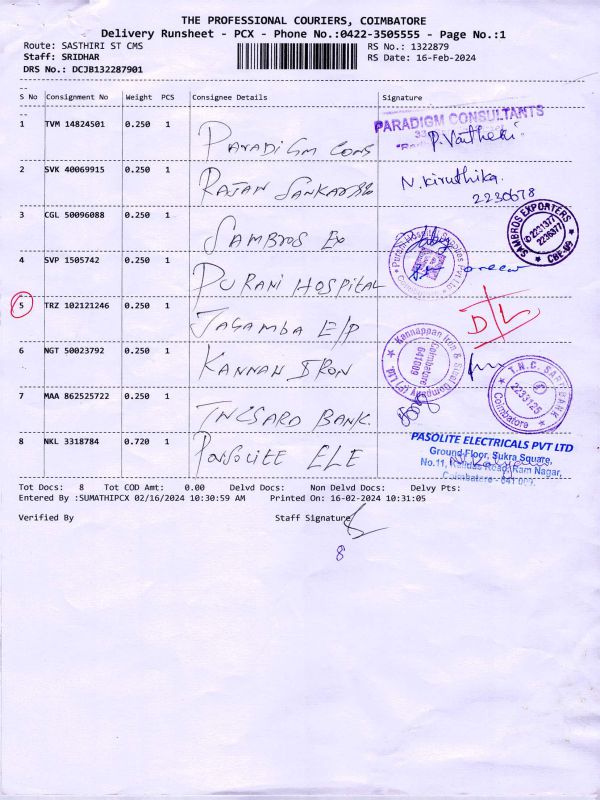 THE PROFESSIONAL COURIERS, COIMBATORE
Delivery Runsheet - PCX - Phone No.:0422-3505555 - Page No.:1
Route: SASTHIRI ST CMS
RS No.: 1322879
Staff: SRIDHAR
RS Date: 16-Feb-2024
DRS No.: DCJB132287901
S No Consignment No Weight PCS Consignee Details Signature
1 TVM 14824501 0.250 1 PARADIGM CONS
PARADIGM CONSULTANTS
2 SVK 40069915 0.250 1 RAJAN N. Kiruthika.
2230678
3 CGL 50096088 0.250 1 SAMBROS EX
SAMBROS EXPORTERS
4 SVP 1505742 0.250 1 PURANI HOSPITAL
Purani Hospital Supplies Pvt Ltd
5 TRZ 102121246 0.250 1 JAGAMBA E/P D/L
6 NGT 50023792 0.250 1 KANNAN IRON
Kannappan Iron & Steel Company (P) Ltd
Coimbatore
641009
7 MAA 862525722 0.250 1 BANK.
2233125
Coimbatore
8 NKL 3318784 0.720 1 ELE
PASOLITE ELECTRICALS PVT LTD
Ground Floor, Sukra Square,
No.11, Kalidas Road, Ram Nagar,
Coimbatore - 641 009.
Tot Docs: 8 Tot COD Amt: 0.00 Delvd Docs: Non Delvd Docs: Delvy Pts:
Entered By :SUMATHIPCX 02/16/2024 10:30:59 AM Printed On: 16-02-2024 10:31:05
Verified By Staff Signature
8